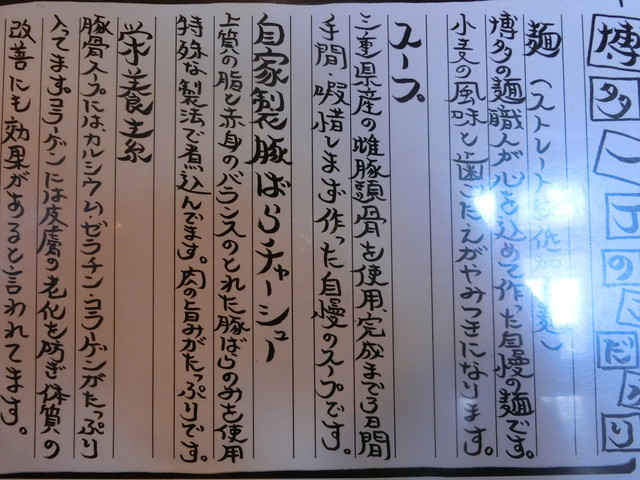 博多一丁のこだわり
麺（ストレート
博多の麺職人が心を込めて作った自慢の麺です。
小麦の風味と歯ごたえがやみつきになります。
スープ
三重県産の雌豚頭骨を使用、完成まで3日間
手間・暇惜します作った自慢のスープです。
自家製豚ばらチャーシュー
上質の脂と赤身のバランスのとれた豚ばらのみを使用
特殊な製法で煮込んでます。肉の旨みがたっぷりです。
栄養素
豚骨スープには、カルシウム・ゼラチン・コラーゲンがたっぷり
入ってます。コラーゲンには皮膚の老化を防ぎ体質の
改善にも効果があると言われてます。